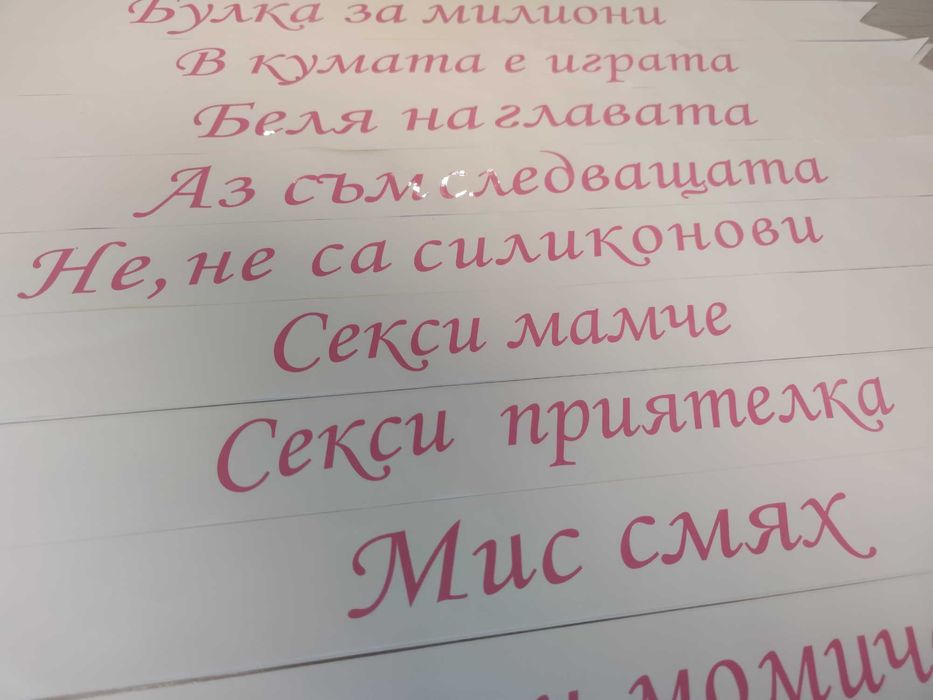 Булка за милиони
В кумата е играта
Беля на главата
Аз съм следващата
Не, не са силиконови
Секси мамче
Секси приятелка
Мис смях